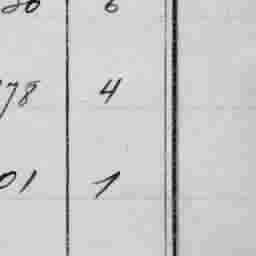 6
78 4
01 1